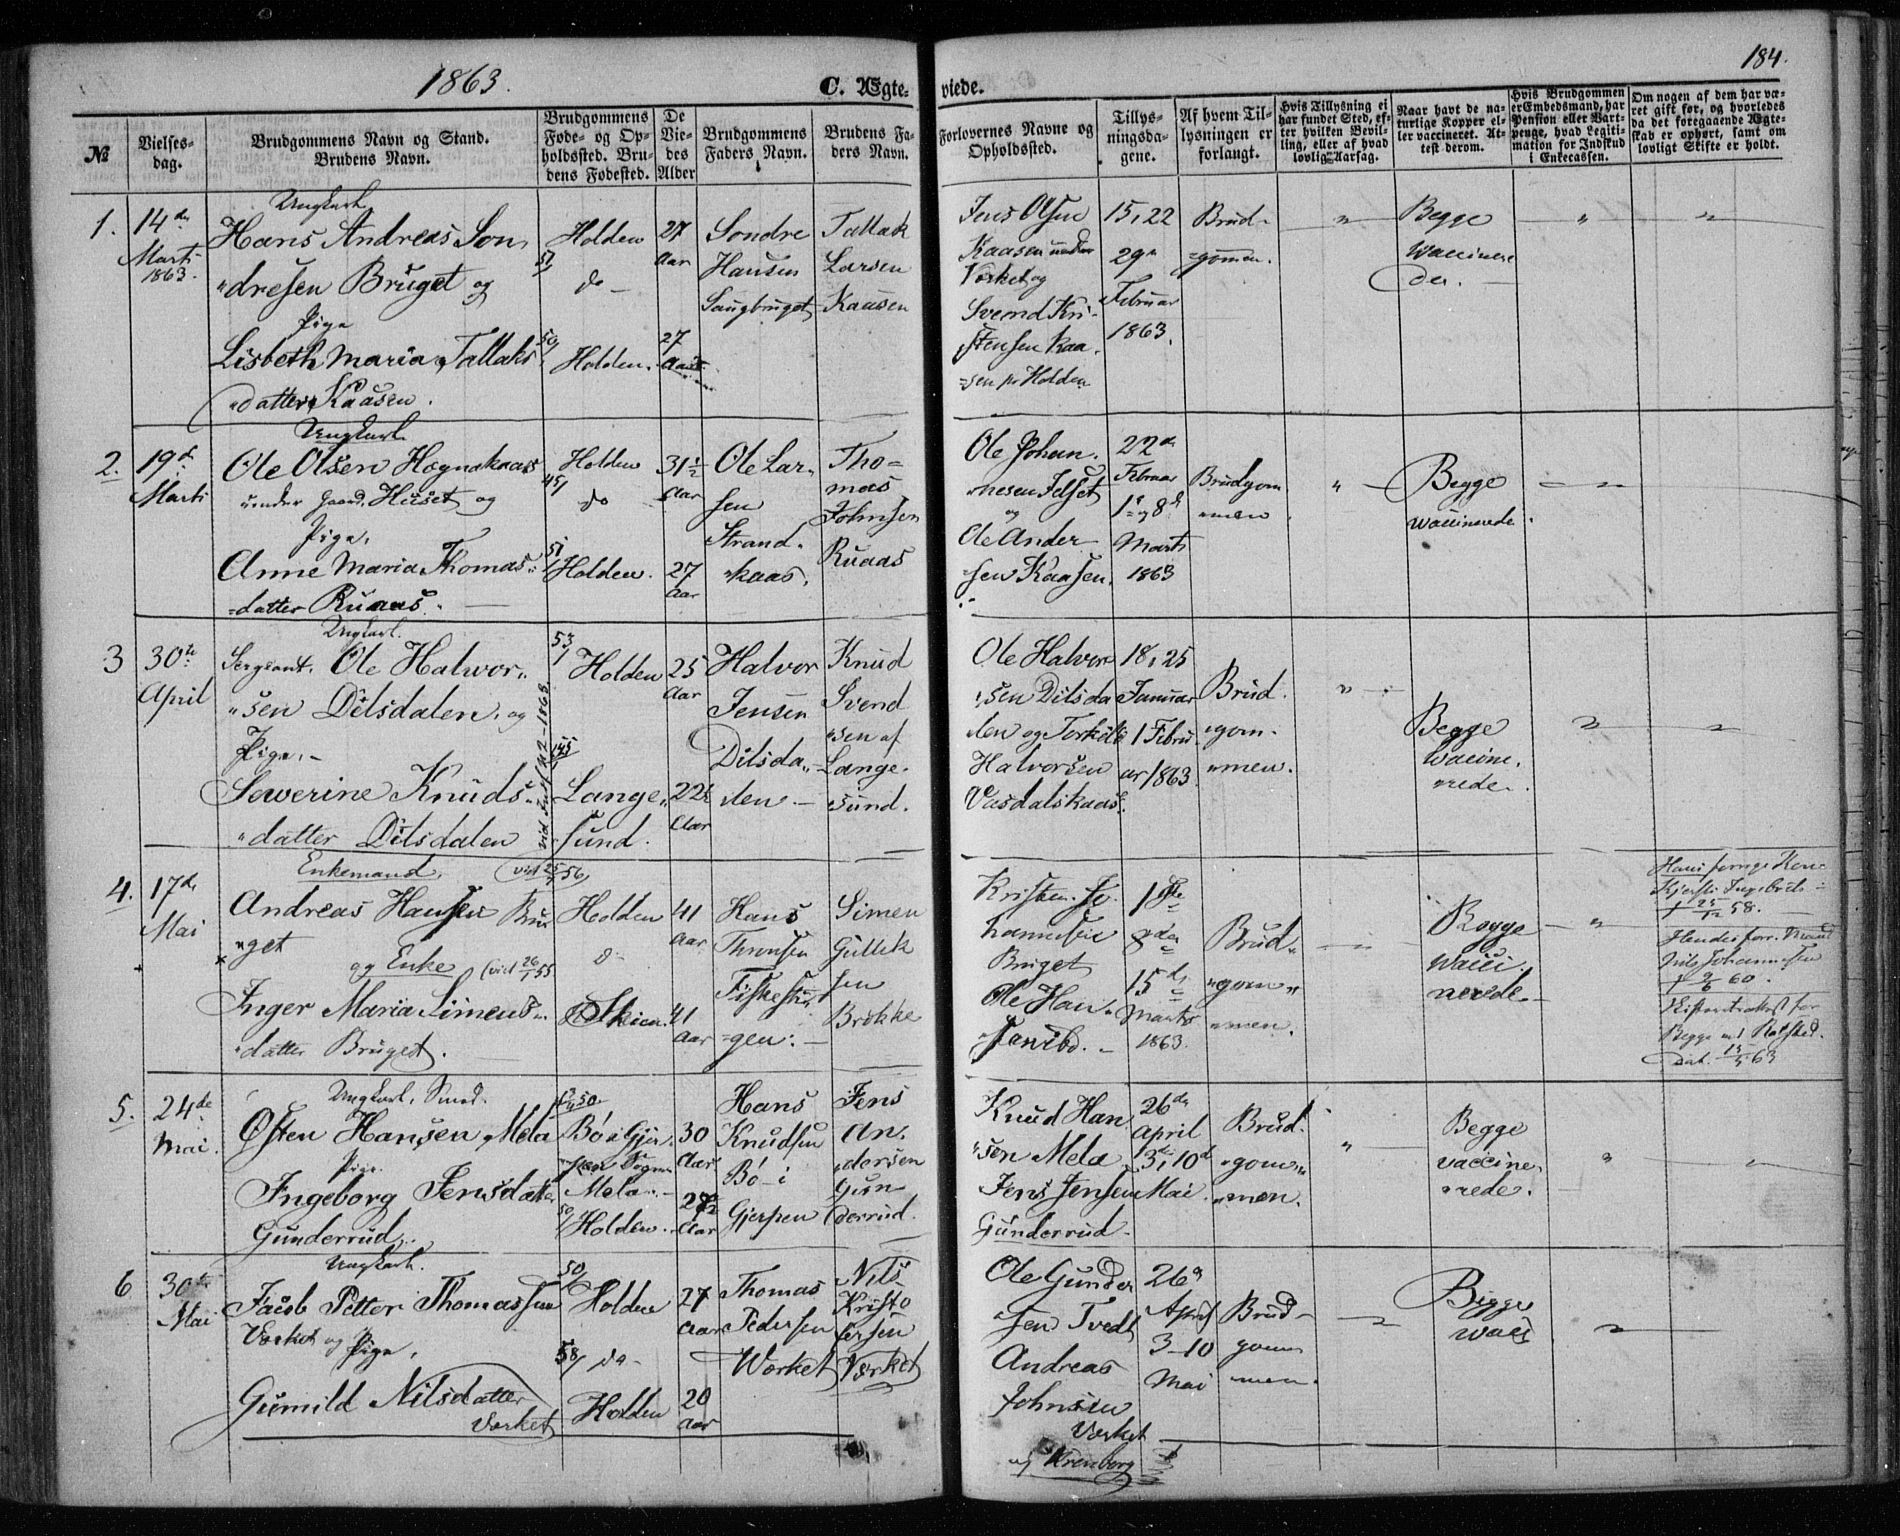 1863.
C. Ægte-
viede.
184.
№
Vielses-
dag.
Brudgommens Navn og Stand.
Brudens Navn.
Brudgommens
Føde- og Op-
holdssted. Bru-
dens Fødested.
De
Vie-
des
Alder
Brudgommens
Faders Navn.
Brudens Fa-
ders Navn.
Forlovernes Navne og
Opholdssted.
Tillys-
ningsda-
gene.
Af hvem Til-
lysningen er
forlangt.
Hvis Tillysning ei
har fundet Sted, ef-
ter hvilken Bevil-
ling, eller af hvad
lovlig Aarsag.
Naar havt de na-
turlige Kopper el-
ler vaccineret. At-
test derom.
Hvis Brudgommen
er Embedsmand, har
Pension eller Vart-
penge, hvad Legiti-
mation for Indskud
i Enkecassen.
Om nogen af dem har væ-
ret gift før, og hvorledes
da det foregaaende Ægte-
skab er ophørt, samt om
lovligt Skifte er holdt.
1.
14de
Marti
1863.
Ungkarl
Hans Andreas Son„
„dresen Bruget og
Pige
Lisbeth Maria Tallaks
„datter Kaasen.
Holden
51/ do -
50/ Holden.
27
Aar
27
Aar
Sondre
Hansen
Saugbruget
Tallak
Larsen
Kaasen
Jens Olsen
Kaasen under
Værket og
Svend Kri-
stensen Kaa-
sen pr Holden
15, 22
29
Februar
1863.
Brud-
-gommen.
„
Begge
Waccinere
der.
„
„
2.
19de
Marti
Ungkarl
Ole Olsen Høgnakaas
under Gaard. Huset og
Pige,
Anne Maria Thomas„
-datter Ruaas.
Holden
45/ do
51/ Holden.
31½
Aar
27
Aar
Ole Lar„
sen
Strand„
„kaas.
Tho=
mas
Johnsen
Ruaas
Ole Johan-
nesen
og
Ole Ander-
sen Kaasen.
22de
Februar
1 og 8de
Marts
1863
Brudgom
„men
„
Begge
waccinerede.
3
30te
April
Ungkarl.
Sergeant, Ole Halvor„
„sen Dilsdalen, og
Pige, -
Severine Knuds„
„datter Dilsdalen
53/
Holden
145
Lange„
sund.
25
Aar
22½
Aar
Halvor
Jensen
Dilsda„
„len -
Knud
Svend
„sen af
Lange-
sund.
Ole Halvor
„sen Dilsda
len og Torkild
Halvorsen
Vasdalskaas.
18, 25
Januar
1 Febru
ar 1863.
Brud.
„gom-
„men.
„
Begge
Waccine„
„rede.
4.
17de
Mai
Enkemand, (vid 25/1 56)
Andreas Hansen Bru
„get
og Enke (vid 26/1 55
Inger Maria Simens„
„datter Bruget.
Holden
Skien.
41
Aar
41
Aar
Hans
Thronsen
Gullik
sen
Simen
Brokke
Bruget
Ole Han„
1ste
8de
15de
Marts
1863.
Brud„
„gom„
„men.
Begge
Wacci„
nerede.
Hans forrige Kone
Kjersti Ingebrits-
† 25/12 58.
Hendes forr. Mand
Nils Johannesen
60.
Begge
Dat. 63
5.
24de
Mai.
Ungkarl, Smed.
Østen Hansen, Mela
Pige.
Ingeborg Jensdatter
Gunderrud.
50
Bø i Gjer
pen Sogn
Mela.
Holden.
30
Aar
27½
Aar
Hans
Knudsen
Bø i
Gjerpen
Jens
An„
dersen
Gun
derrud.
Knud Han
„sen Mela
Jens Jensen
Gunderrud.
26de
April
3de, 10de
Mai.
Brud-
„gom„
„men.
„
Begge
vaccine„
„rede.
„
„
6
30te
Mai
Ungkarl.
Jacob Petter Thomassen
Værket og Pige,
Gunnild Nilsdatter
Værket
50/
Holden
58/ do -
Holden
27
Aar
20
Aar
Thomas
Pedersen
Værket
Nils
Kristo
fersen
Værket
Ole Gunder
sen Tvedt
Andreas
Johnsen
Værket
af Kronborg
26de
April
3-10
Mai
Brud-
gom
-men.
Begge
Wacc